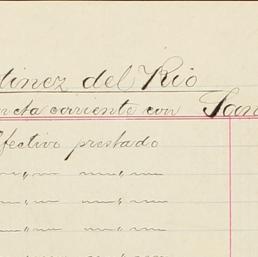 tinez del Rio
en cta corriente con San
Efectivo prestado
" " " "
" " " "
" " " "